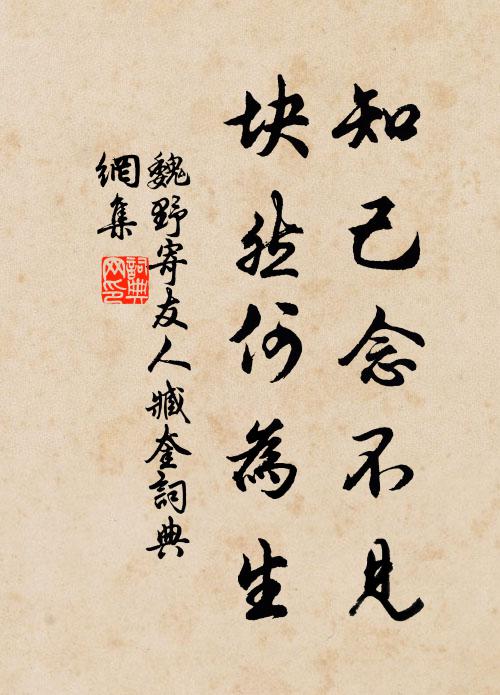 知己念不見
块然何為生
魏野寄友人臧奎詞典
網集
詞典網印